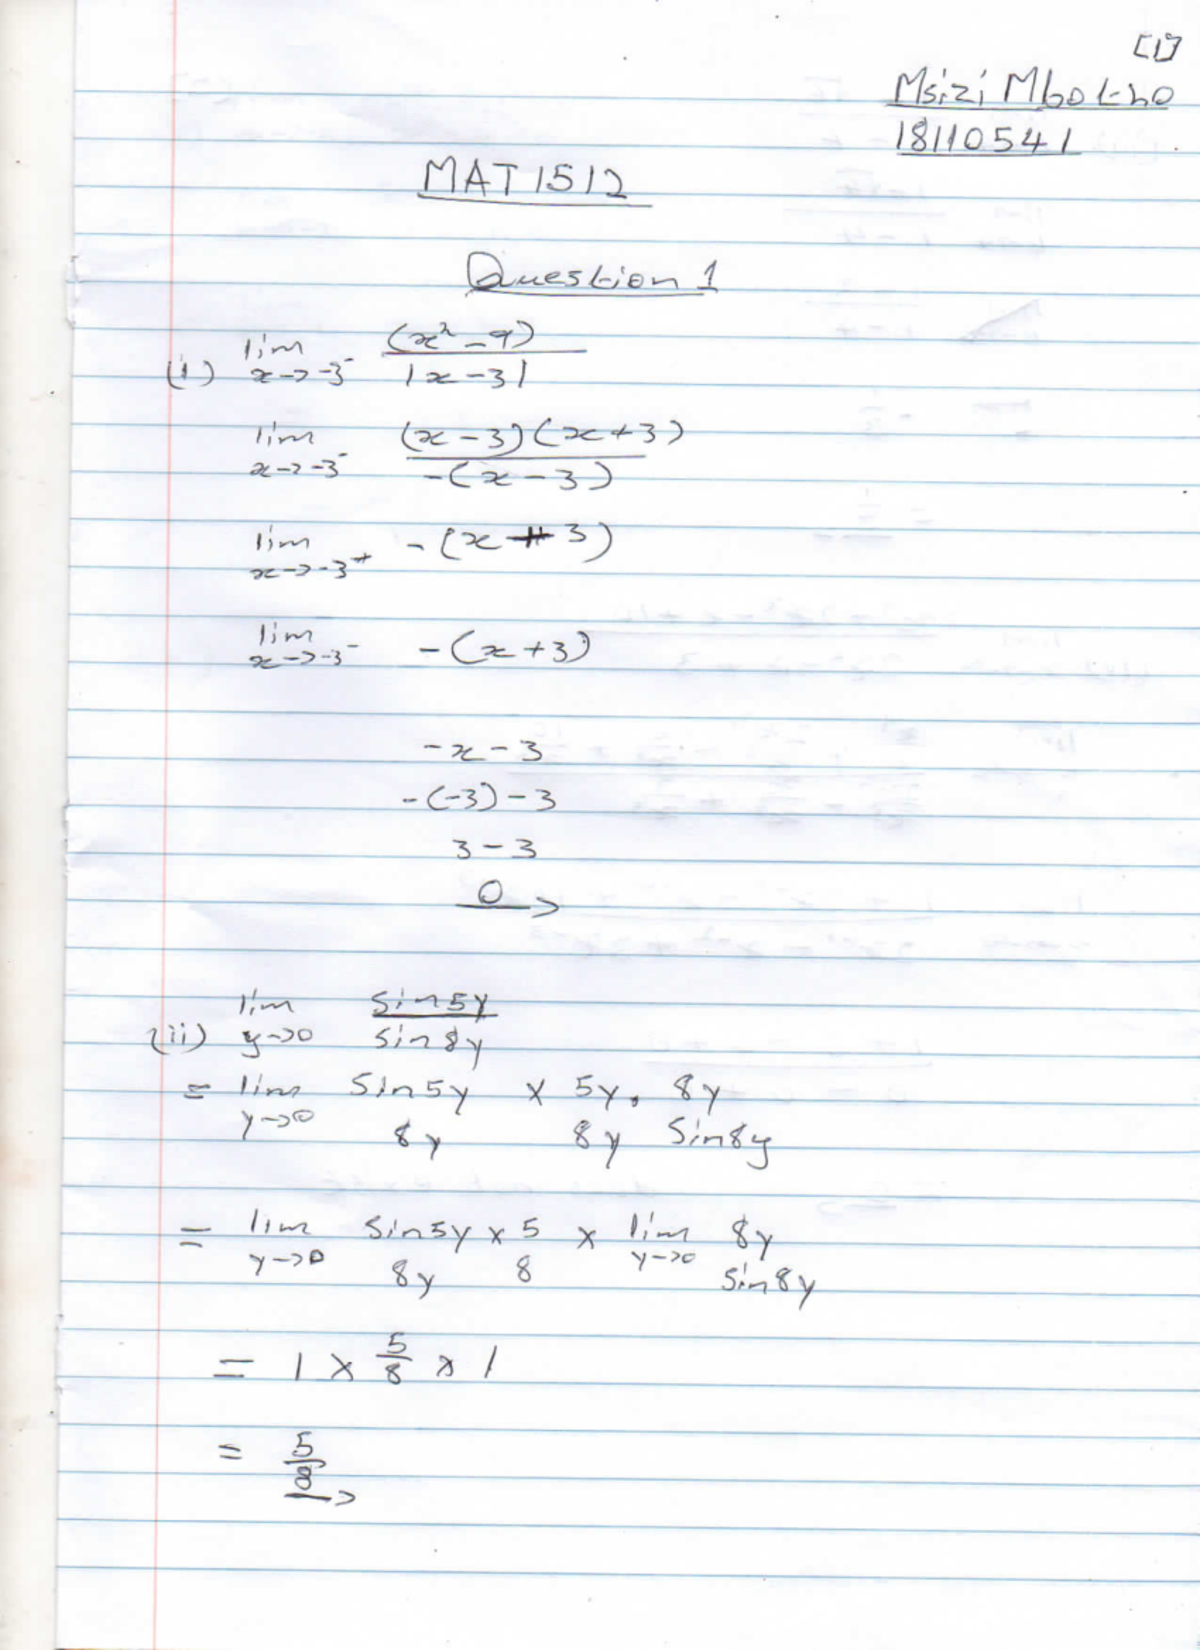 [1]
Msizi Mbotho
18110541
MAT1512
Question 1
(i) lim x→-3⁻ (x²-9)/|x-3|
lim x→-3⁻ (x-3)(x+3)/-(x-3)
lim x→-3⁺ -(x+3)
lim x→-3⁻ -(x+3)
-x-3
-(-3)-3
3-3
0
(ii) lim y→0 sin5y/sin8y
= lim y→0 sin5y/8y × 5y/8y . 8y/sin8y
= lim y→0 sin5y/8y × 5/8 × lim y→0 8y/sin8y
= 1 × 5/8 × 1
= 5/8